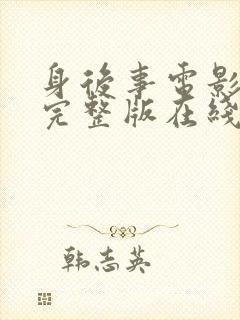 身後事電影
完整版在綫
韩志英